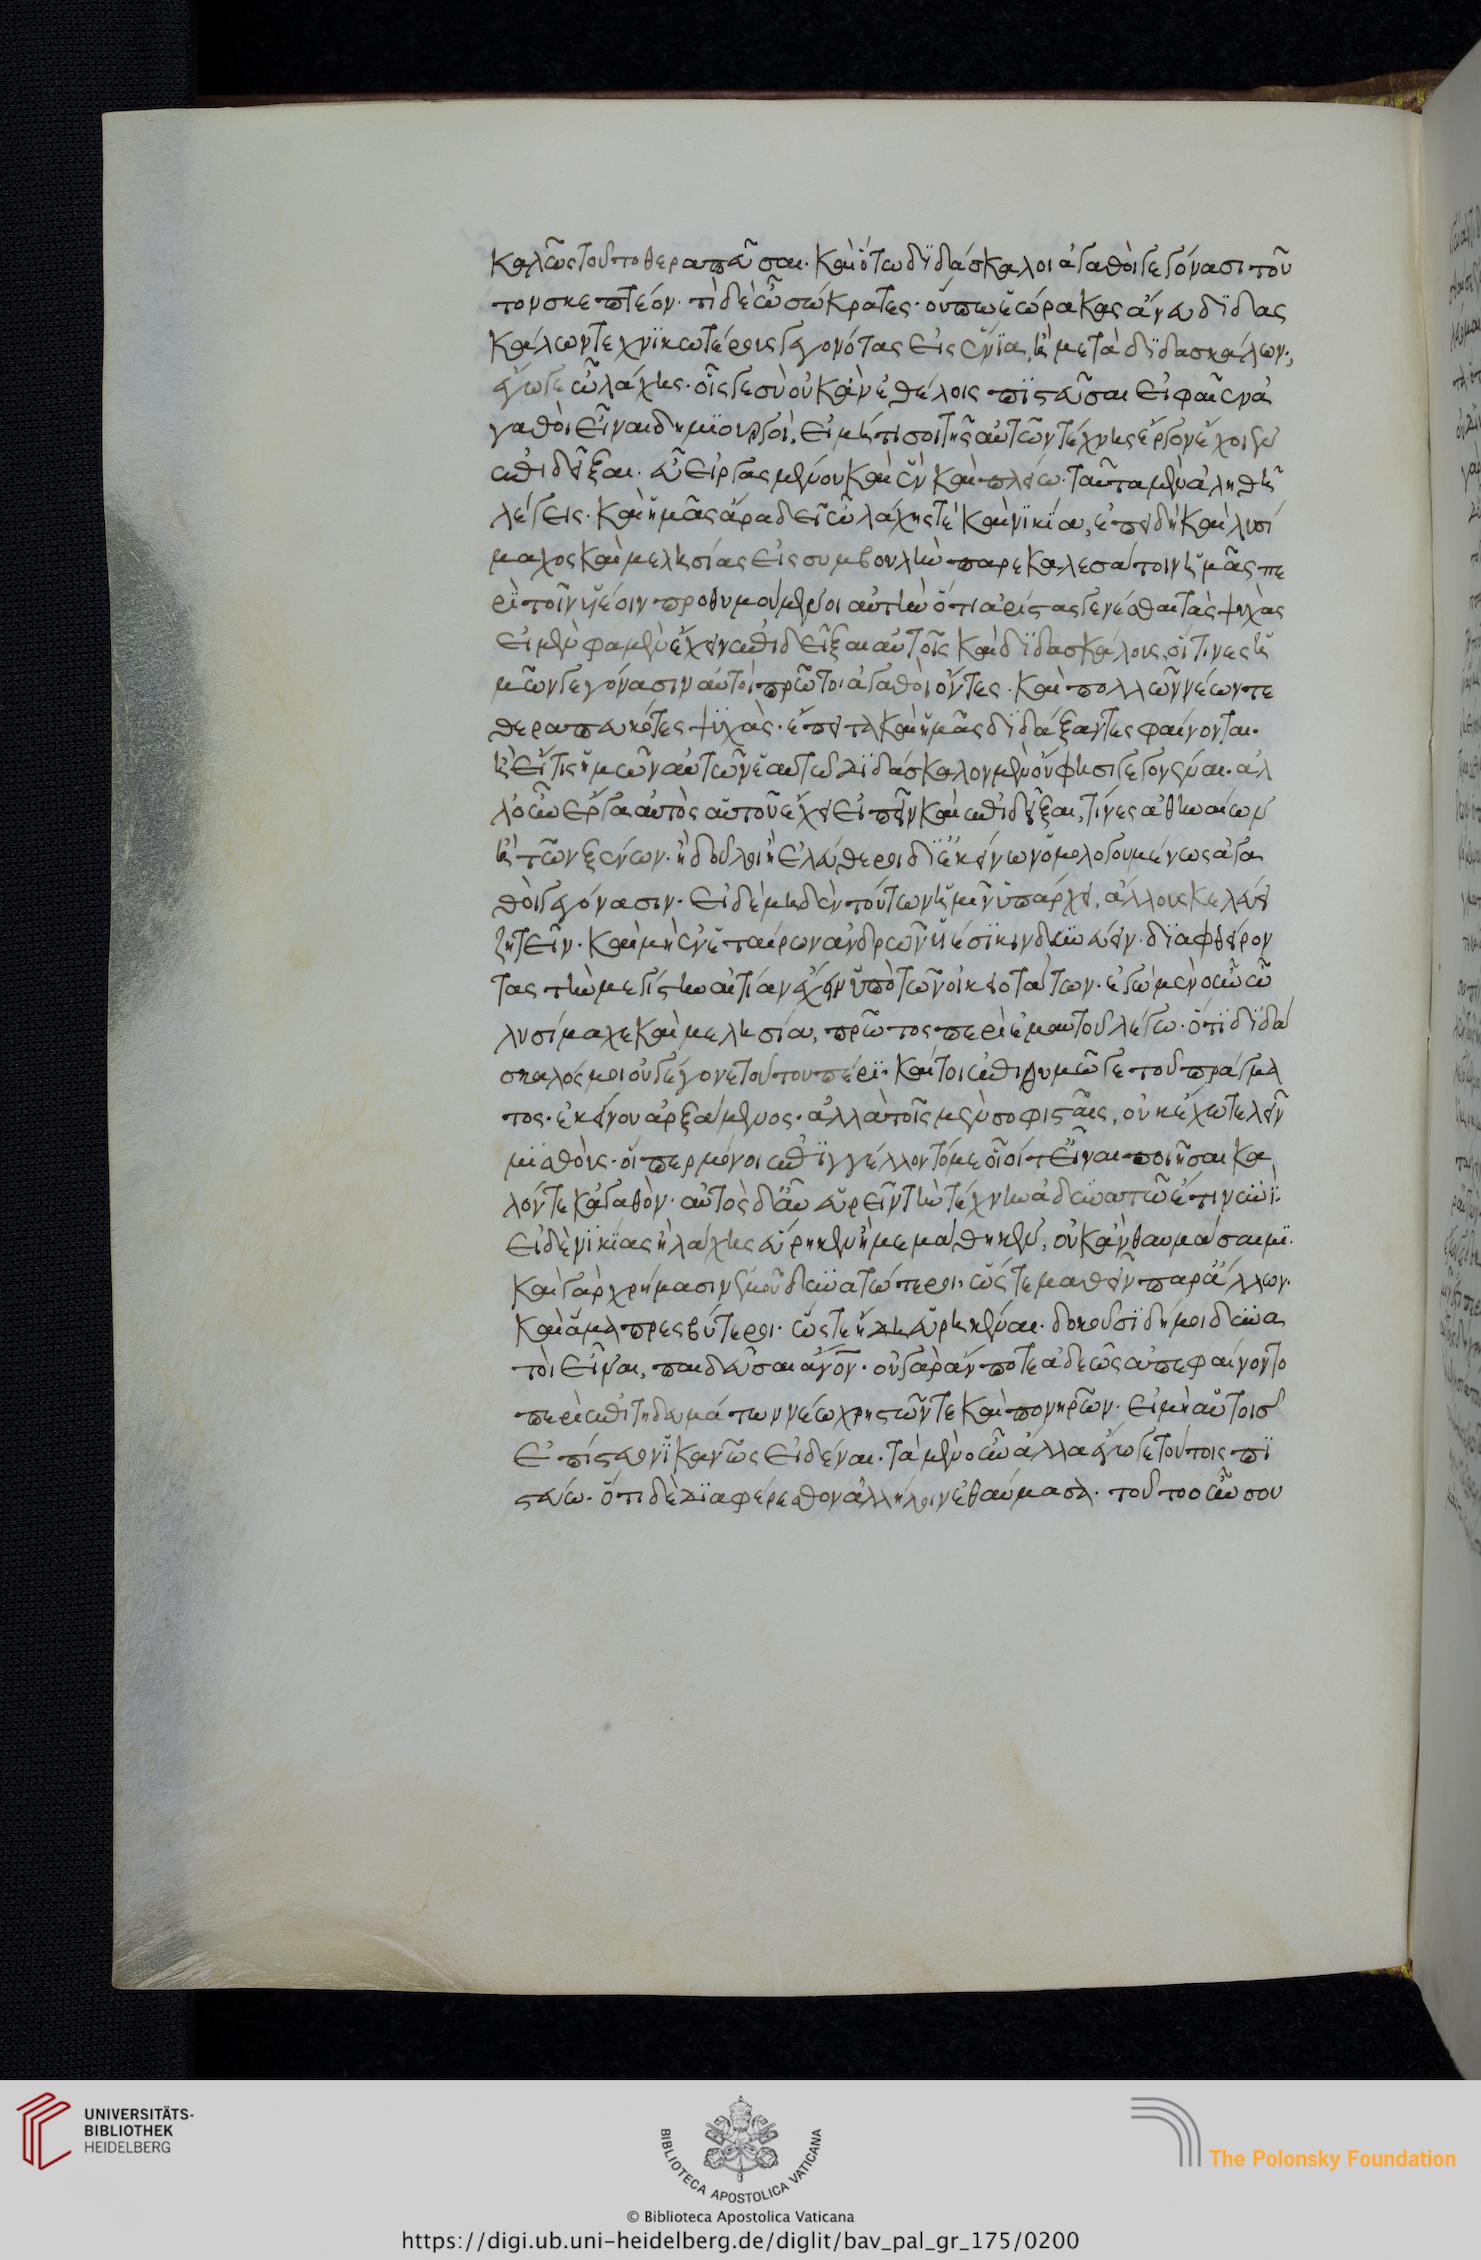 καλῶς τοῦτο θεραπεῦσαι· καὶ ὅτω διδάσκαλοι ἀγαθοὶ γεγόνασι τοῦ
τον σκεπτέον· τί δὲ ὦ σώκρατες· οὔπω ἑώρακας ἄνευ διδασ
κάλων τεχνικωτέροις γεγονότας εἰς ἔνια, ἢ μετὰ διδασκάλων·,
ἔγωγε ὦ λάχης· οἷς γε σὺ οὐκ ἂν ἐθέλοις πιστεῦσαι εἰ φαῖεν ἀ
γαθοὶ εἶναι δημιουργοί, εἰ μή τί σοι τῆς αὐτῶν τέχνης ἔργον ἔχοιεν
ἐπιδεῖξαι· εὖ εἰργασμένον καὶ ἓν καὶ πλείω· ταῦτα μὲν ἀληθῆ
λέγεις· καὶ ἡμᾶς ἄρα δεῖ ὦ λάχης τέ καὶ νικία, ἐπειδὴ καὶ λυσί
μαχος καὶ μελησίας εἰς συμβουλὴν παρεκαλεσάτοιν ἡμᾶς πε
ρὶ τοῖν ὑέοιν προθυμούμενοι αὐτὴν ὅτι ἀρίστας γενέσθαι τὰς ψυχὰς
εἰ μὲν φαμὲν ἔχειν ἐπιδεῖξαι αὐτοῖς καὶ διδασκάλους, οἵτινες ἡ
μῶν γεγόνασιν αὐτοὶ πρῶτοι ἀγαθοὶ ὄντες· καὶ πολλῶν νέων τε
θεραπευκότες ψυχὰς· ἔπειτα καὶ ἡμᾶς διδάξαντες φαίνονται·
ἢ εἴ τις ἡμῶν αὐτῶν ἑαυτῶ διδάσκαλον μὲν οὔ φησι γεγονέναι· ἀλ
λ' οὖν ἔργα αὐτὸς αὑτοῦ ἔχει εἰπεῖν καὶ ἐπιδεῖξαι, τίνες ἀθηναίων
ἢ τῶν ξένων· ἢ δοῦλοι ἢ ἐλεύθεροι δι' ἐκείνων ὁμολογουμένως ἀγα
θοὶ γεγόνασιν· εἰ δὲ μηδὲν τούτων ἡμῖν ὑπάρχει, ἄλλους κελεύει
ζητεῖν· καὶ μὴ ἐν ἑταίρων ἀνδρῶν ὑέσι κινδυνεύειν· διαφθείρον
τας τὴν μεγίστην αἰτίαν ἔχειν ὑπὸ τῶν οἰκειοτάτων· ἐγὼ μὲν οὖν ὦ
λυσίμαχε καὶ μελησία, πρῶτος περὶ ἐμαυτοῦ λέγω· ὅτι διδά
σκαλός μοι οὐ γέγονε τούτου πέρι· καίτοι ἐπιθυμῶ γε τοῦ πράγμα
τος· ἐκ νέου ἀρξάμενος· ἀλλὰ τοῖς μὲν σοφισταῖς, οὐκ ἔχω τελεῖν
μισθούς· οἵπερ μόνοι ἐπηγγέλλοντό με οἷοί τ' εἶναι ποιῆσαι κα
λόν τε κἀγαθόν· αὐτὸς δ' αὖ εὑρεῖν τὴν τέχνην ἀδυνατῶ ἔτι νυνί·
εἰ δὲ νικίας ἢ λάχης εὕρηκεν ἢ μεμάθηκεν, οὐκ ἂν θαυμάσαιμι·
καὶ γὰρ χρήμασιν ἐμοῦ δυνατώτεροι, ὥστε μαθεῖν παρ' ἄλλων·
καὶ ἅμα πρεσβύτεροι· ὥστε ἤδη εὑρηκέναι· δοκοῦσι δή μοι δυνα
τοὶ εἶναι, παιδεῦσαι ἄνον· οὐ γὰρ ἄν ποτε ἀδεῶς ἀπεφαίνοντο
περὶ ἐπιτηδευμάτων νέω χρηστῶν τε καὶ πονηρῶν· εἰ μὴ αὑτοῖς
ἐπίστευον ἱκανῶς εἰδέναι· τὰ μὲν οὖν ἄλλα ἔγωγε τούτοις πι
στεύω· ὅτι δὲ διαφέρεσθον ἀλλήλοιν ἐθαύμασα· τοῦτο οὖν σου
UNIVERSITÄTS-
BIBLIOTHEK
HEIDELBERG
BIBLIOTECA APOSTOLICA VATICANA
The Polonsky Foundation
© Biblioteca Apostolica Vaticana
https://digi.ub.uni-heidelberg.de/diglit/bav_pal_gr_175/0200